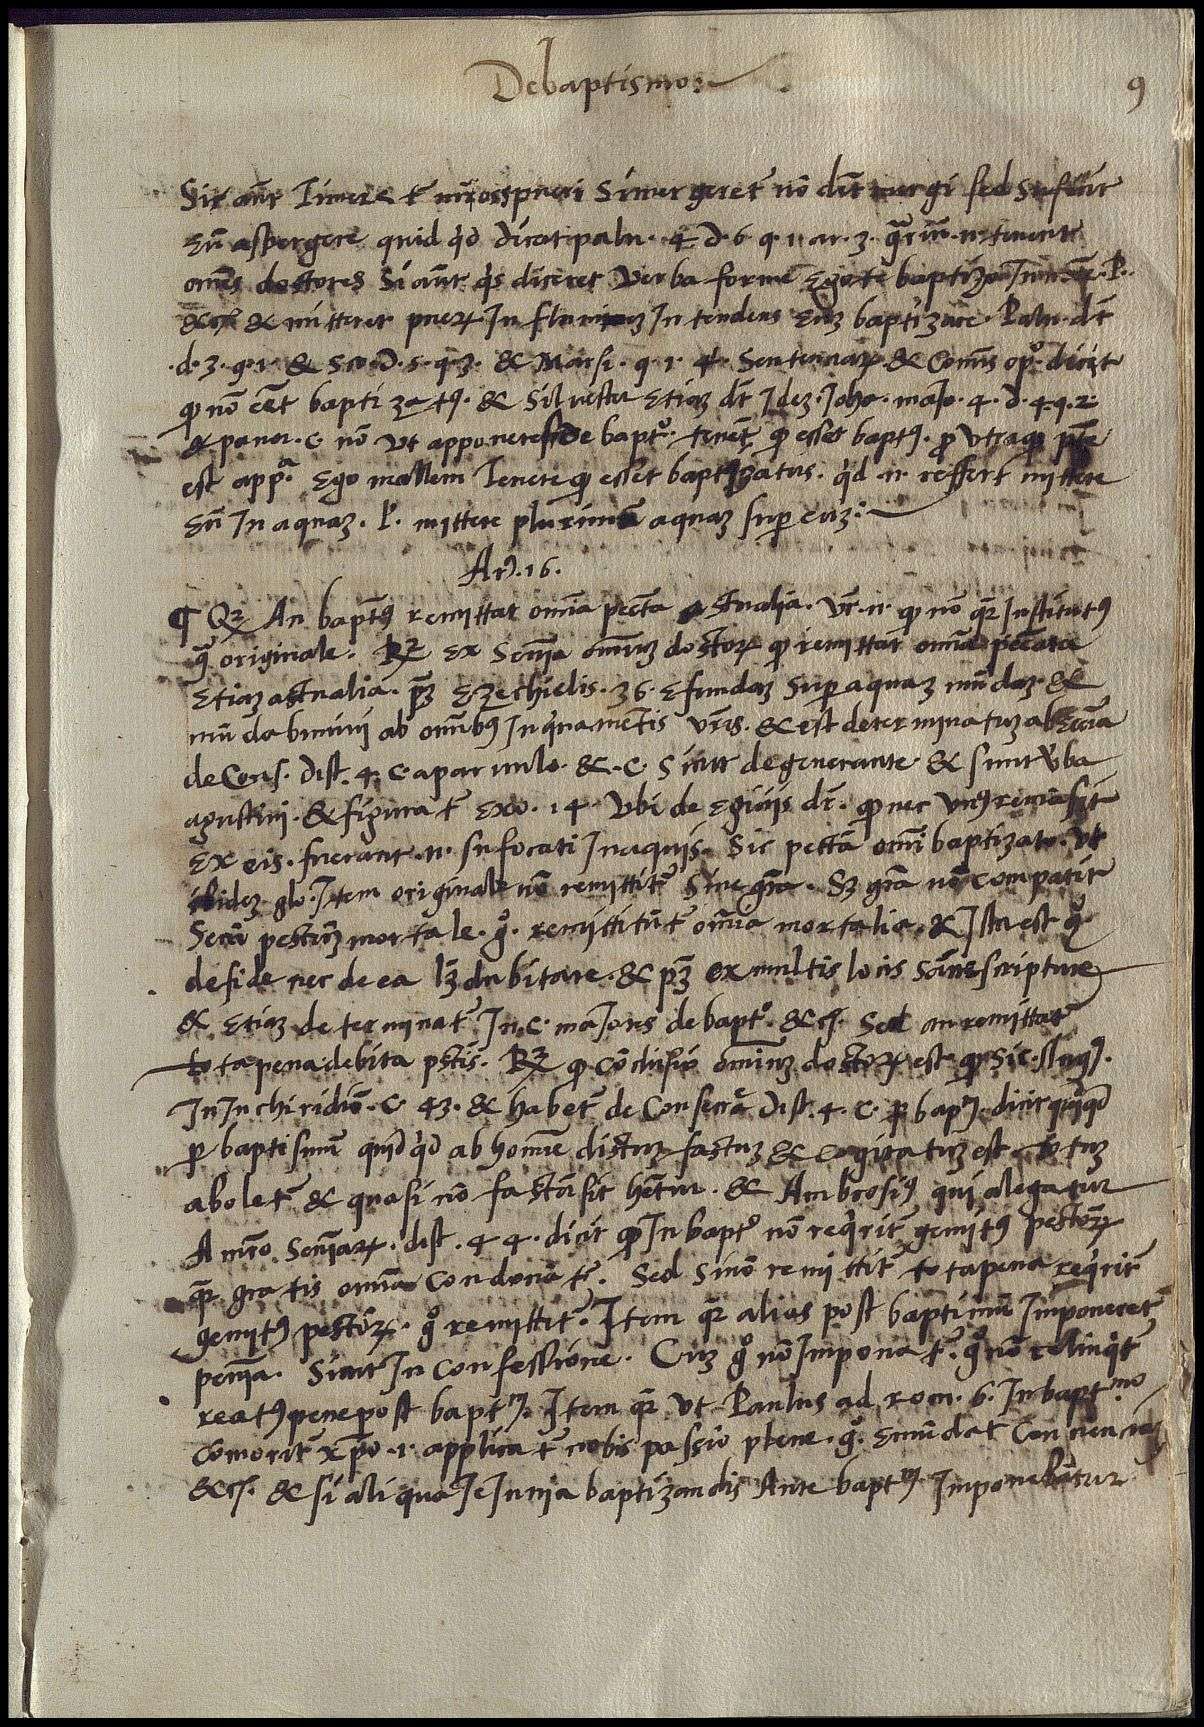 De baptismo
9
Si aūt timeret̄ mors pueri si mergeret̄ nō det mergi sed sufficit
eū aspergere quid qd dicat palu. 4. d. 6. q. 1. ar. 3. tenent
om̄es doctores Si aūt qs diceret verba forme Ego te baptizo In P.
&c & mitteret puerꝝ In flumen Intendens eūz baptizare. Palu. dt
.d. 3. q. 1. & Sco. D. 5. q. 3. & Marsi. q. 1. 4. Sententiaꝝ & Com̄s opº. dicit
qp nō eēt baptizatꝰ. & Silvester Etiaz dt Idez. Joha. maIo. 4. d. 4. q. 2.
& panor. c. nō ut apponeres de baptº. tenet qp esset baptꝰ. p utraqꝫ pte
est appª. Ego mallem tenere qp esset baptizatus. qd n. reffert mittere
Eū In aquaz. l. mittere plurimā aquaz super euz.
Ar. 16.
¶ Qꝝ An baptꝰ remittat om̄ia pecta actualia. Vr. n. qp nō qr Institutꝰ
originale. Rꝝ Ex Sentia omniuz doctoꝝ qp remittat omnia peccata
Etiaz actualia. pꝫ Ezechielis. 36. Efundaz super aquaz mūdaz &
mūdabimini ab omībꝰ Inquinamentis vr̄is. & est determinatuz ab Ecc̄ia
de Cons. Dist. 4. C. a parvulo. & .C. Sicut de generante & sunt v̄ba
agustini. & figurat̄ Exo. 14. Ubi de Egiciis dr̄. qp nec vnꝰ remāsit
Ex eis. fuerant. n. sufocati In aquis. Sic pctā omī baptizato. ut
ibidez glo. Item originale nō remittitᵘ Sine grā. Sꝫ grā nō compatit̄
Secū pectuz mortale. gº. remittitūt̄ omnia mortalia. & Ista est qº
de fide nec de ea lꝫ dubitare. & pꝫ ex multis locis Sācte scripture
& Etiaz determinat̄ In. c. maJores de baptº. &c. Sed an remittat̄
tota pena debita pctis. Rꝝ qp cōclusio omniuz doctoꝝ est qp Sic. Augꝰ.
In Inchiridiō. c. 43. & habet̄ de Consecrā. Dist. 4. C. p bapᵐ. dicit
p baptismū quid qd ab homine dictuz factuz & cogitatuz est totuz
abolet̄ & quasi nō factū sit het̄ur. & Ambrosiꝰ qui alegatur
A mr̄o Senti̅aꝝ. dist. 4 4. dicit qp In baptº nō reqrit̄ gemitꝰ pectoꝝ
qꝝ gratis omnia condonat̄. Sed Si nō remittit̄ tota pena reqrit̄
gemitꝰ pectoꝝ. gº remittit̄. Item qꝝ alias post baptimū Imponeret̄
penia. Sicut In confessione. Cuz gº nō Imponat̄. gº nō relinqt̄
reatꝰ pene post baptᵐ. Item qꝝ ut Paulus ad rom. 6. In baptᵐᵒ
cōmorit̄ xpō .i. applicat̄ nobis passio plene. gº. Emūdat
&c. & si aliqua IeIunia baptizandis Ante baptᵐ. Imponebātur